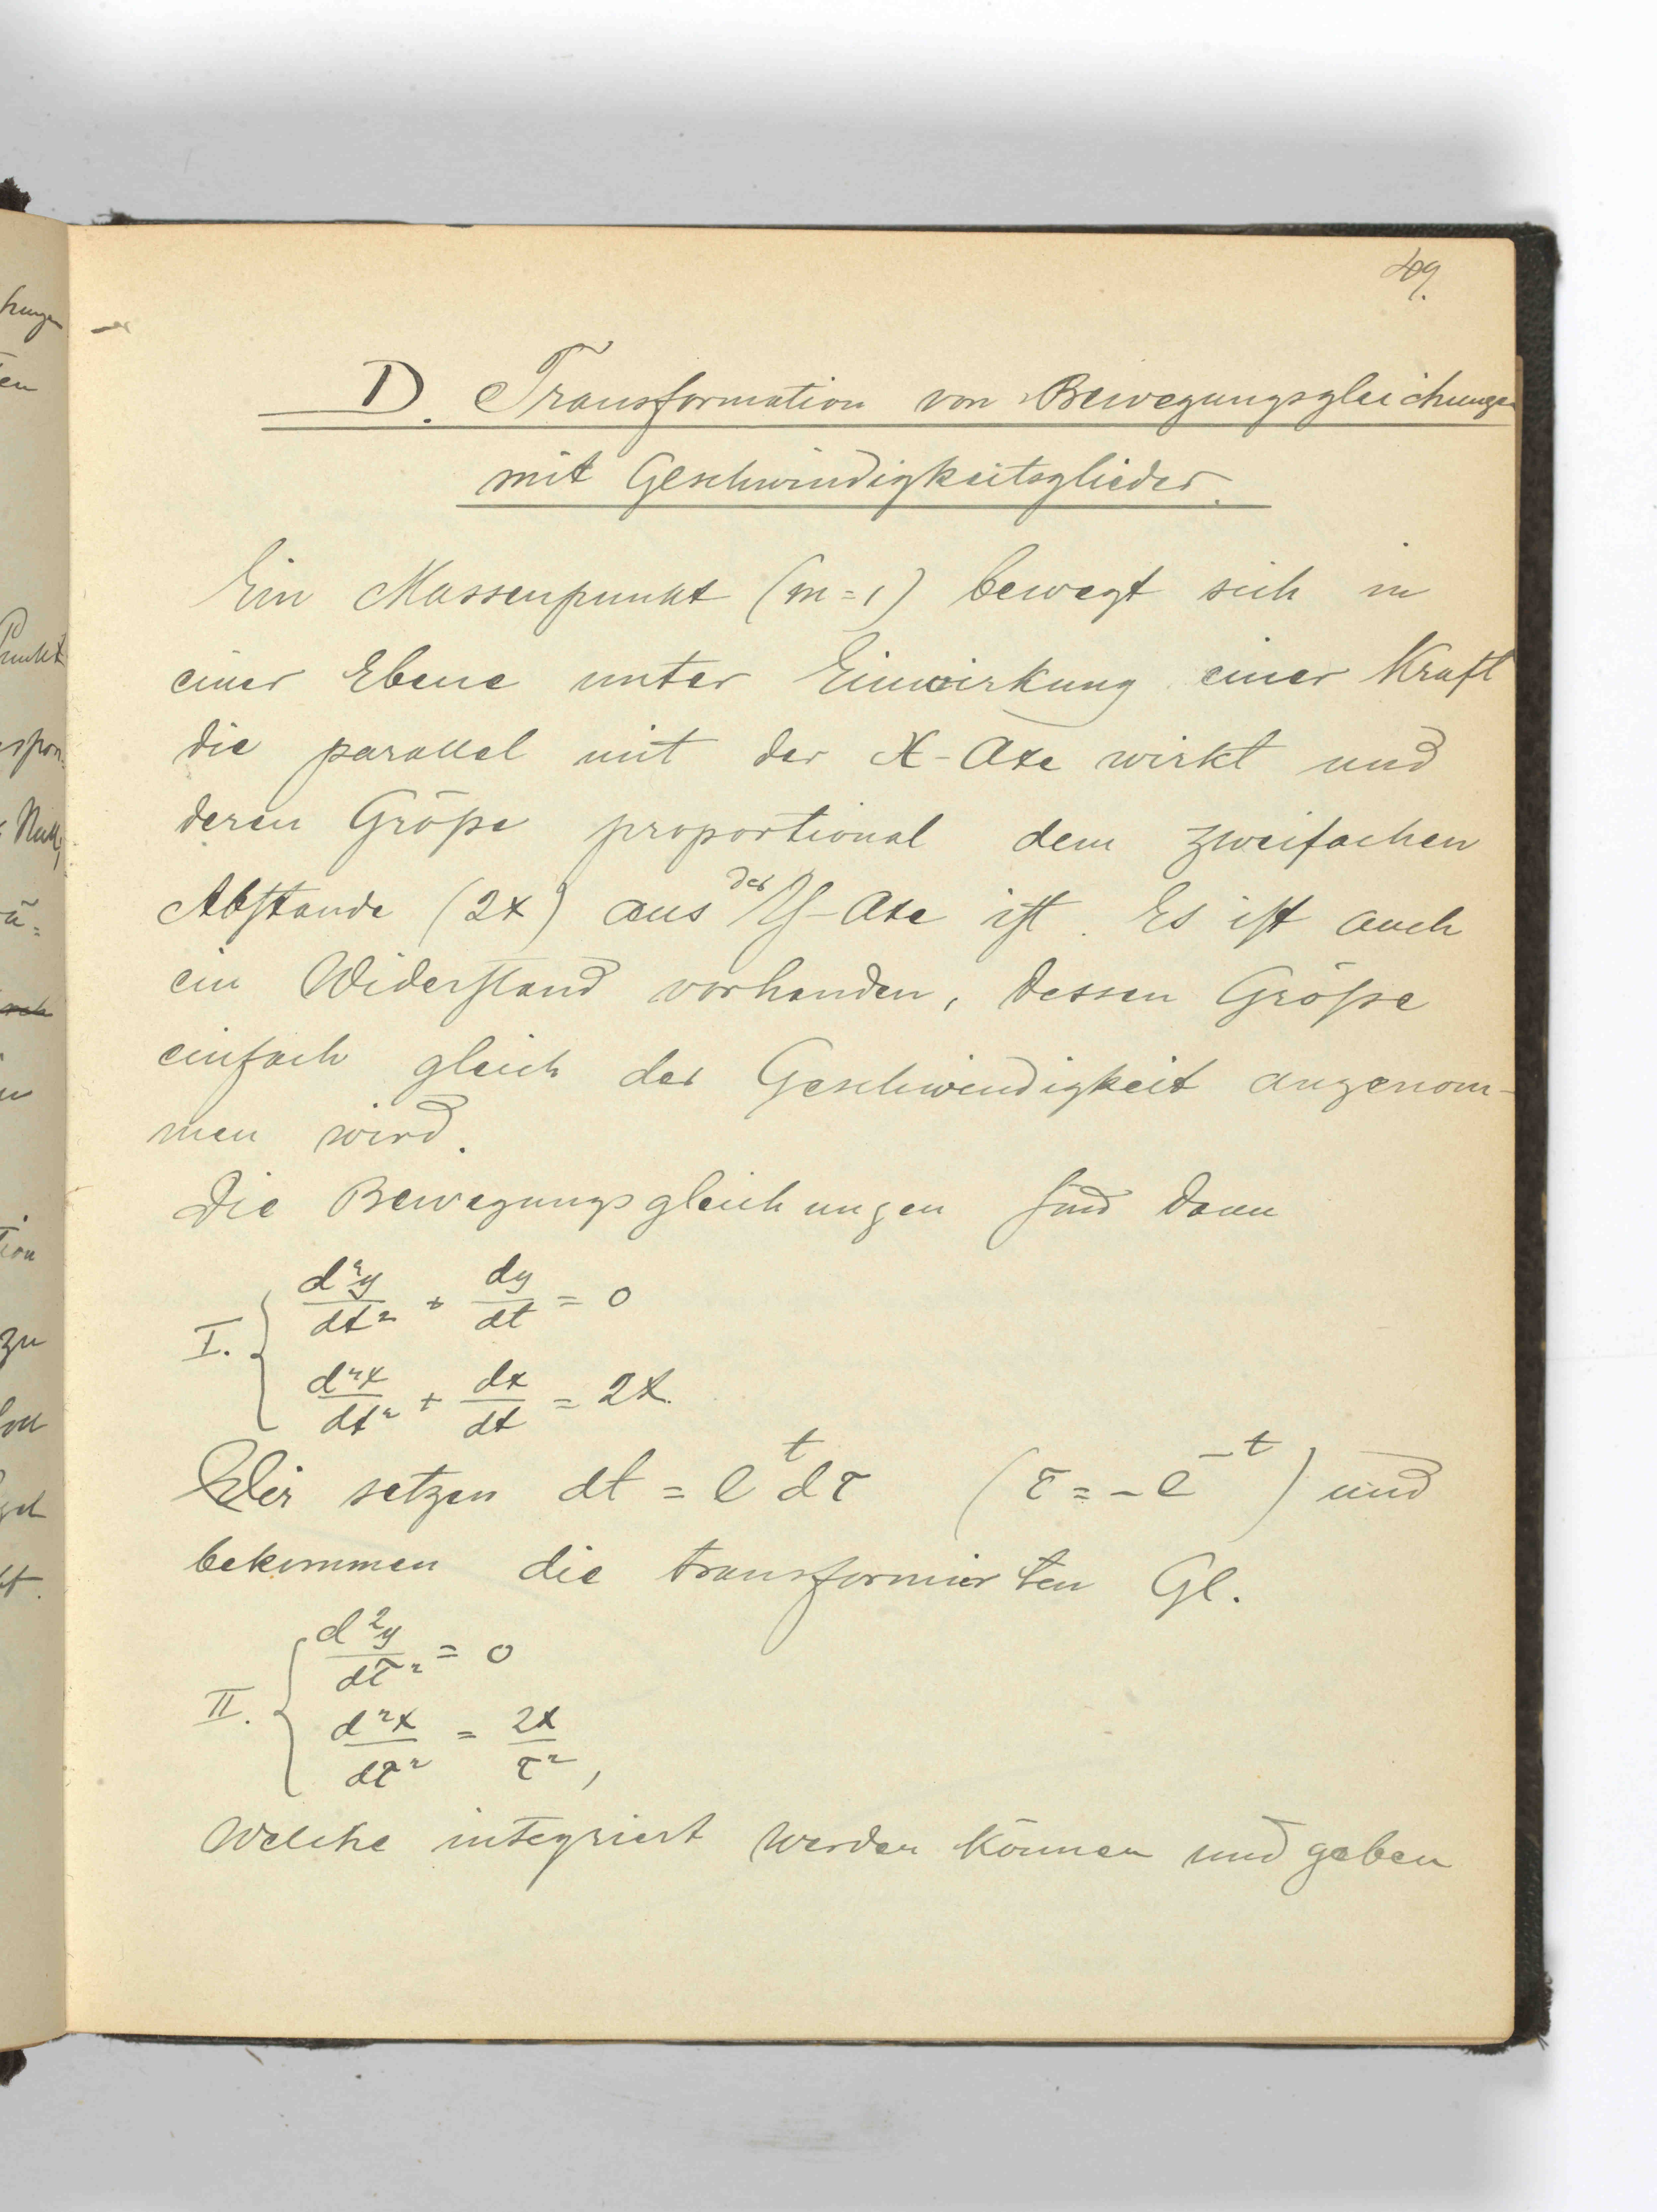 49.
D. Transformation von Bewegungsgleichungen
mit Geschwindigkeitsglieder.
Ein Massenpunkt (m=1) bewegt sich in
einer Ebene unter Einwirkung einer Kraft
die parallel mit der X-Axe wirkt und
deren Größe proportional dem zweifachen
Abstande (2x) aus der Y-Axe ist. Es ist auch
ein Widerstand vorhanden, dessen Größe
einfach gleich der Geschwindigkeit angenom-
men wird.
Die Bewegungsgleichungen sind dann
I. { d²y/dt² + dy/dt = 0
d²x/dt² + dx/dt = 2x.
Wir setzen dt = e^t dτ (τ = -e^-t) und
bekommen die transformierten Gl.
II. { d²y/dτ² = 0
d²x/dτ² = 2x/τ²,
Welche integriert werden können und geben